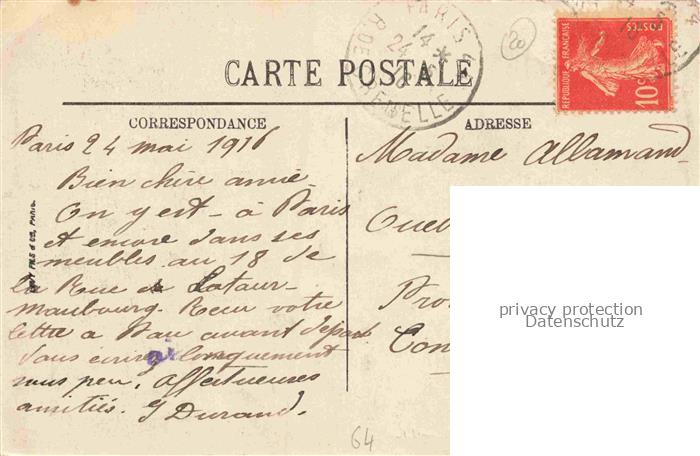 PARIS
14 *
24 -5
16
R. DE GRENELLE
20
POSTES
REPUBLIQUE FRANÇAISE
10c
CARTE POSTALE
CORRESPONDANCE
ADRESSE
Paris 24 mai 1916
Bien chère amie
On y est - à Paris
et encore dans ses
meubles au 18 de
la Rue de Latour-
Maubourg. Reçu votre
lettre à Pau avant départ
Vous écrirai longuement
sous peu. Affectueuses
amitiés. G Durand.
Madame Allamand
Pro
Con
FILS & Cie, PARIS.
64
privacy protection
Datenschutz